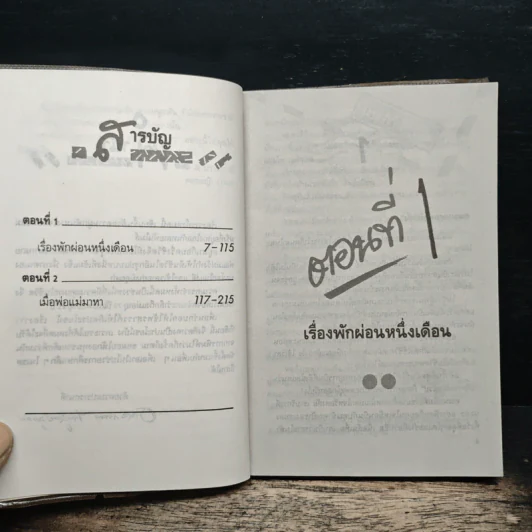 สารบัญ
ตอนที่ 1
เรื่องพักผ่อนหนึ่งเดือน 7-115
ตอนที่ 2
เมื่อพ่อแม่มาหา 117-215
ตอนที่ 1
เรื่องพักผ่อนหนึ่งเดือน